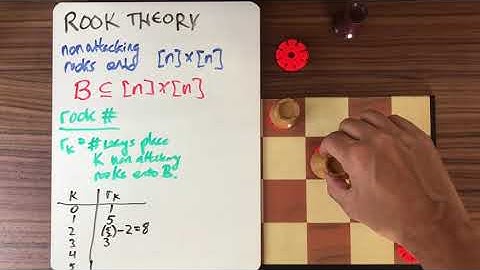 ROOK THEORY
non attacking
rooks onto [n]×[n]
B ⊆ [n]×[n]
rook #
r_k = # ways place
K non attacking
rooks onto B.
K r_k
0 1
1 5
2 (5 2) - 2 = 8
3 3
4
5